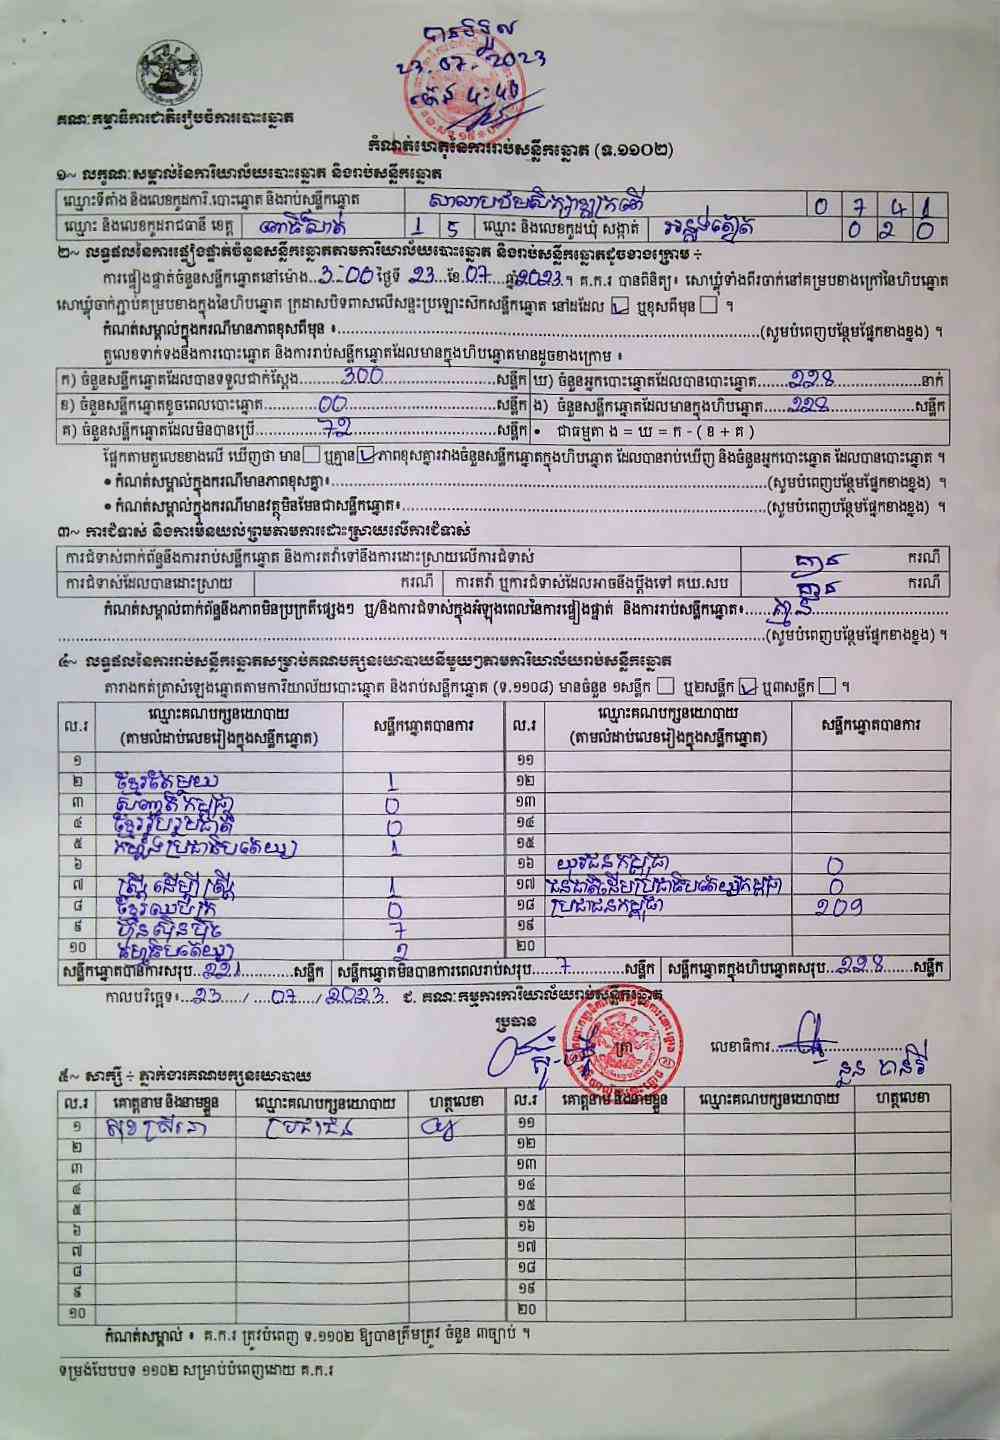 បានទទួល
23.07.2023
ម៉ោង ៤:៤០
គណៈកម្មាធិការជាតិរៀបចំការបោះឆ្នោត
កំណត់ហេតុនៃការរាប់សន្លឹកឆ្នោត (ទ.១១០២)
១~ លក្ខណៈសម្គាល់នៃការិយាល័យបោះឆ្នោត និងរាប់សន្លឹកឆ្នោត
ឈ្មោះទីតាំង និងលេខកូដការិ.បោះឆ្នោត និងរាប់សន្លឹកឆ្នោត សាលាបឋមសិក្សា 0 7 4 1
ឈ្មោះ និងលេខកូដរាជធានី ខេត្ត ពោធិ៍សាត់ 1 5 ឈ្មោះ និងលេខកូដឃុំ សង្កាត់ អន្លង់ត្នោត 0 2 0
២~ លទ្ធផលនៃការផ្ទៀងផ្ទាត់ចំនួនសន្លឹកឆ្នោតតាមការិយាល័យបោះឆ្នោត និងរាប់សន្លឹកឆ្នោតដូចខាងក្រោម ÷
ការផ្ទៀងផ្ទាត់ចំនួនសន្លឹកឆ្នោតនៅម៉ោង 3-00 ថ្ងៃទី 23 ខែ 07 ឆ្នាំ 2023 ។ គ.ក.រ បានពិនិត្យ៖ សោឃ្លុំទាំងពីរចាក់នៅគម្របខាងក្រៅនៃហិបឆ្នោត
សោឃ្លុំចាក់ភ្ជាប់គម្របខាងក្នុងនៃហិបឆ្នោត ក្រដាសបិទពាសលើសន្ទះប្រឡោះស៊ីកសន្លឹកឆ្នោត នៅដដែល ☑ ឬខុសពីមុន ☐ ។
កំណត់សម្គាល់ក្នុងករណីមានភាពខុសពីមុន ៖ (សូមបំពេញបន្ថែមផ្នែកខាងខ្នង) ។
តួលេខទាក់ទងនឹងការបោះឆ្នោត និងការរាប់សន្លឹកឆ្នោតដែលមានក្នុងហិបឆ្នោតមានដូចខាងក្រោម ៖
ក) ចំនួនសន្លឹកឆ្នោតដែលបានទទួលជាក់ស្តែង 300 សន្លឹក ឃ) ចំនួនអ្នកបោះឆ្នោតដែលបានបោះឆ្នោត 228 នាក់
ខ) ចំនួនសន្លឹកឆ្នោតខូចពេលបោះឆ្នោត 00 សន្លឹក ង) ចំនួនសន្លឹកឆ្នោតដែលមានក្នុងហិបឆ្នោត 228 សន្លឹក
គ) ចំនួនសន្លឹកឆ្នោតដែលមិនបានប្រើ 72 សន្លឹក • ជាធម្មតា ង = ឃ = ក - ( ខ + គ )
ផ្អែកតាមតួលេខខាងលើ ឃើញថា មាន ☐ ឬគ្មាន ☑ ភាពខុសគ្នារវាងចំនួនសន្លឹកឆ្នោតក្នុងហិបឆ្នោត ដែលបានរាប់ឃើញ និងចំនួនអ្នកបោះឆ្នោត ដែលបានបោះឆ្នោត ។
• កំណត់សម្គាល់ក្នុងករណីមានភាពខុសគ្នា៖ (សូមបំពេញបន្ថែមផ្នែកខាងខ្នង) ។
• កំណត់សម្គាល់ក្នុងករណីមានវត្ថុមិនមែនជាសន្លឹកឆ្នោត៖ (សូមបំពេញបន្ថែមផ្នែកខាងខ្នង) ។
៣~ ការជំទាស់ និងការមិនយល់ព្រមតាមការដោះស្រាយលើការជំទាស់
ការជំទាស់ពាក់ព័ន្ធនឹងការរាប់សន្លឹកឆ្នោត និងការតវ៉ាទៅនឹងការដោះស្រាយលើការជំទាស់ គ្មាន ករណី
ការជំទាស់ដែលបានដោះស្រាយ ករណី ការតវ៉ា ឬការជំទាស់ដែលអាចនឹងប្តឹងទៅ គឃ.សប គ្មាន ករណី
កំណត់សម្គាល់ពាក់ព័ន្ធនឹងភាពមិនប្រក្រតីផ្សេងៗ ឬ/និងការជំទាស់ក្នុងអំឡុងពេលនៃការផ្ទៀងផ្ទាត់ និងការរាប់សន្លឹកឆ្នោត៖ គ្មាន
(សូមបំពេញបន្ថែមផ្នែកខាងខ្នង) ។
៤~ លទ្ធផលនៃការរាប់សន្លឹកឆ្នោតសម្រាប់គណបក្សនយោបាយនីមួយៗតាមការិយាល័យរាប់សន្លឹកឆ្នោត
តារាងកត់ត្រាសំឡេងឆ្នោតតាមការិយាល័យបោះឆ្នោត និងរាប់សន្លឹកឆ្នោត (ទ.១១០៨) មានចំនួន ១សន្លឹក ☐ ឬ២សន្លឹក ☑ ឬ៣សន្លឹក ☐ ។
ល.រ ឈ្មោះគណបក្សនយោបាយ (តាមលំដាប់លេខរៀងក្នុងសន្លឹកឆ្នោត) សន្លឹកឆ្នោតបានការ ល.រ ឈ្មោះគណបក្សនយោបាយ (តាមលំដាប់លេខរៀងក្នុងសន្លឹកឆ្នោត) សន្លឹកឆ្នោតបានការ
១ ១១
២ ខ្មែរតែមួយ 1 ១២
៣ សញ្ជាតិកម្ពុជា 0 ១៣
៤ ខ្មែររួបរួមជាតិ 0 ១៤
៥ កម្លាំងប្រជាធិបតេយ្យ 1 ១៥
៦ ១៦ យុវជនកម្ពុជា 0
៧ ស្ត្រីដើម្បីស្ត្រី 1 ១៧ ជនជាតិដើមប្រជាធិបតេយ្យកម្ពុជា 0
៨ ខ្មែរឈប់ក្រ 0 ១៨ ប្រជាជនកម្ពុជា 209
៩ ហ៊្វុនស៊ិនប៉ិច 7 ១៩
១០ 2 ២០
សន្លឹកឆ្នោតបានការសរុប 221 សន្លឹក សន្លឹកឆ្នោតមិនបានការពេលរាប់សរុប 7 សន្លឹក សន្លឹកឆ្នោតក្នុងហិបឆ្នោតសរុប 228 សន្លឹក
កាលបរិច្ឆេទ៖ 23 / 07 / 2023 ជ. គណៈកម្មការការិយាល័យរាប់សន្លឹកឆ្នោត
ប្រធាន ត្រា លេខាធិការ
៥~ សាក្សី ÷ ភ្នាក់ងារគណបក្សនយោបាយ
ល.រ គោត្តនាម និងនាមខ្លួន ឈ្មោះគណបក្សនយោបាយ ហត្ថលេខា ល.រ គោត្តនាម និងនាមខ្លួន ឈ្មោះគណបក្សនយោបាយ ហត្ថលេខា
១ សុខ ប្រជាជន ១១
២ ១២
៣ ១៣
៤ ១៤
៥ ១៥
៦ ១៦
៧ ១៧
៨ ១៨
៩ ១៩
១០ ២០
កំណត់សម្គាល់ ៖ គ.ក.រ ត្រូវបំពេញ ទ.១១០២ ឱ្យបានត្រឹមត្រូវ ចំនួន ៣ច្បាប់ ។
ទម្រង់បែបបទ ១១០២ សម្រាប់បំពេញដោយ គ.ក.រ